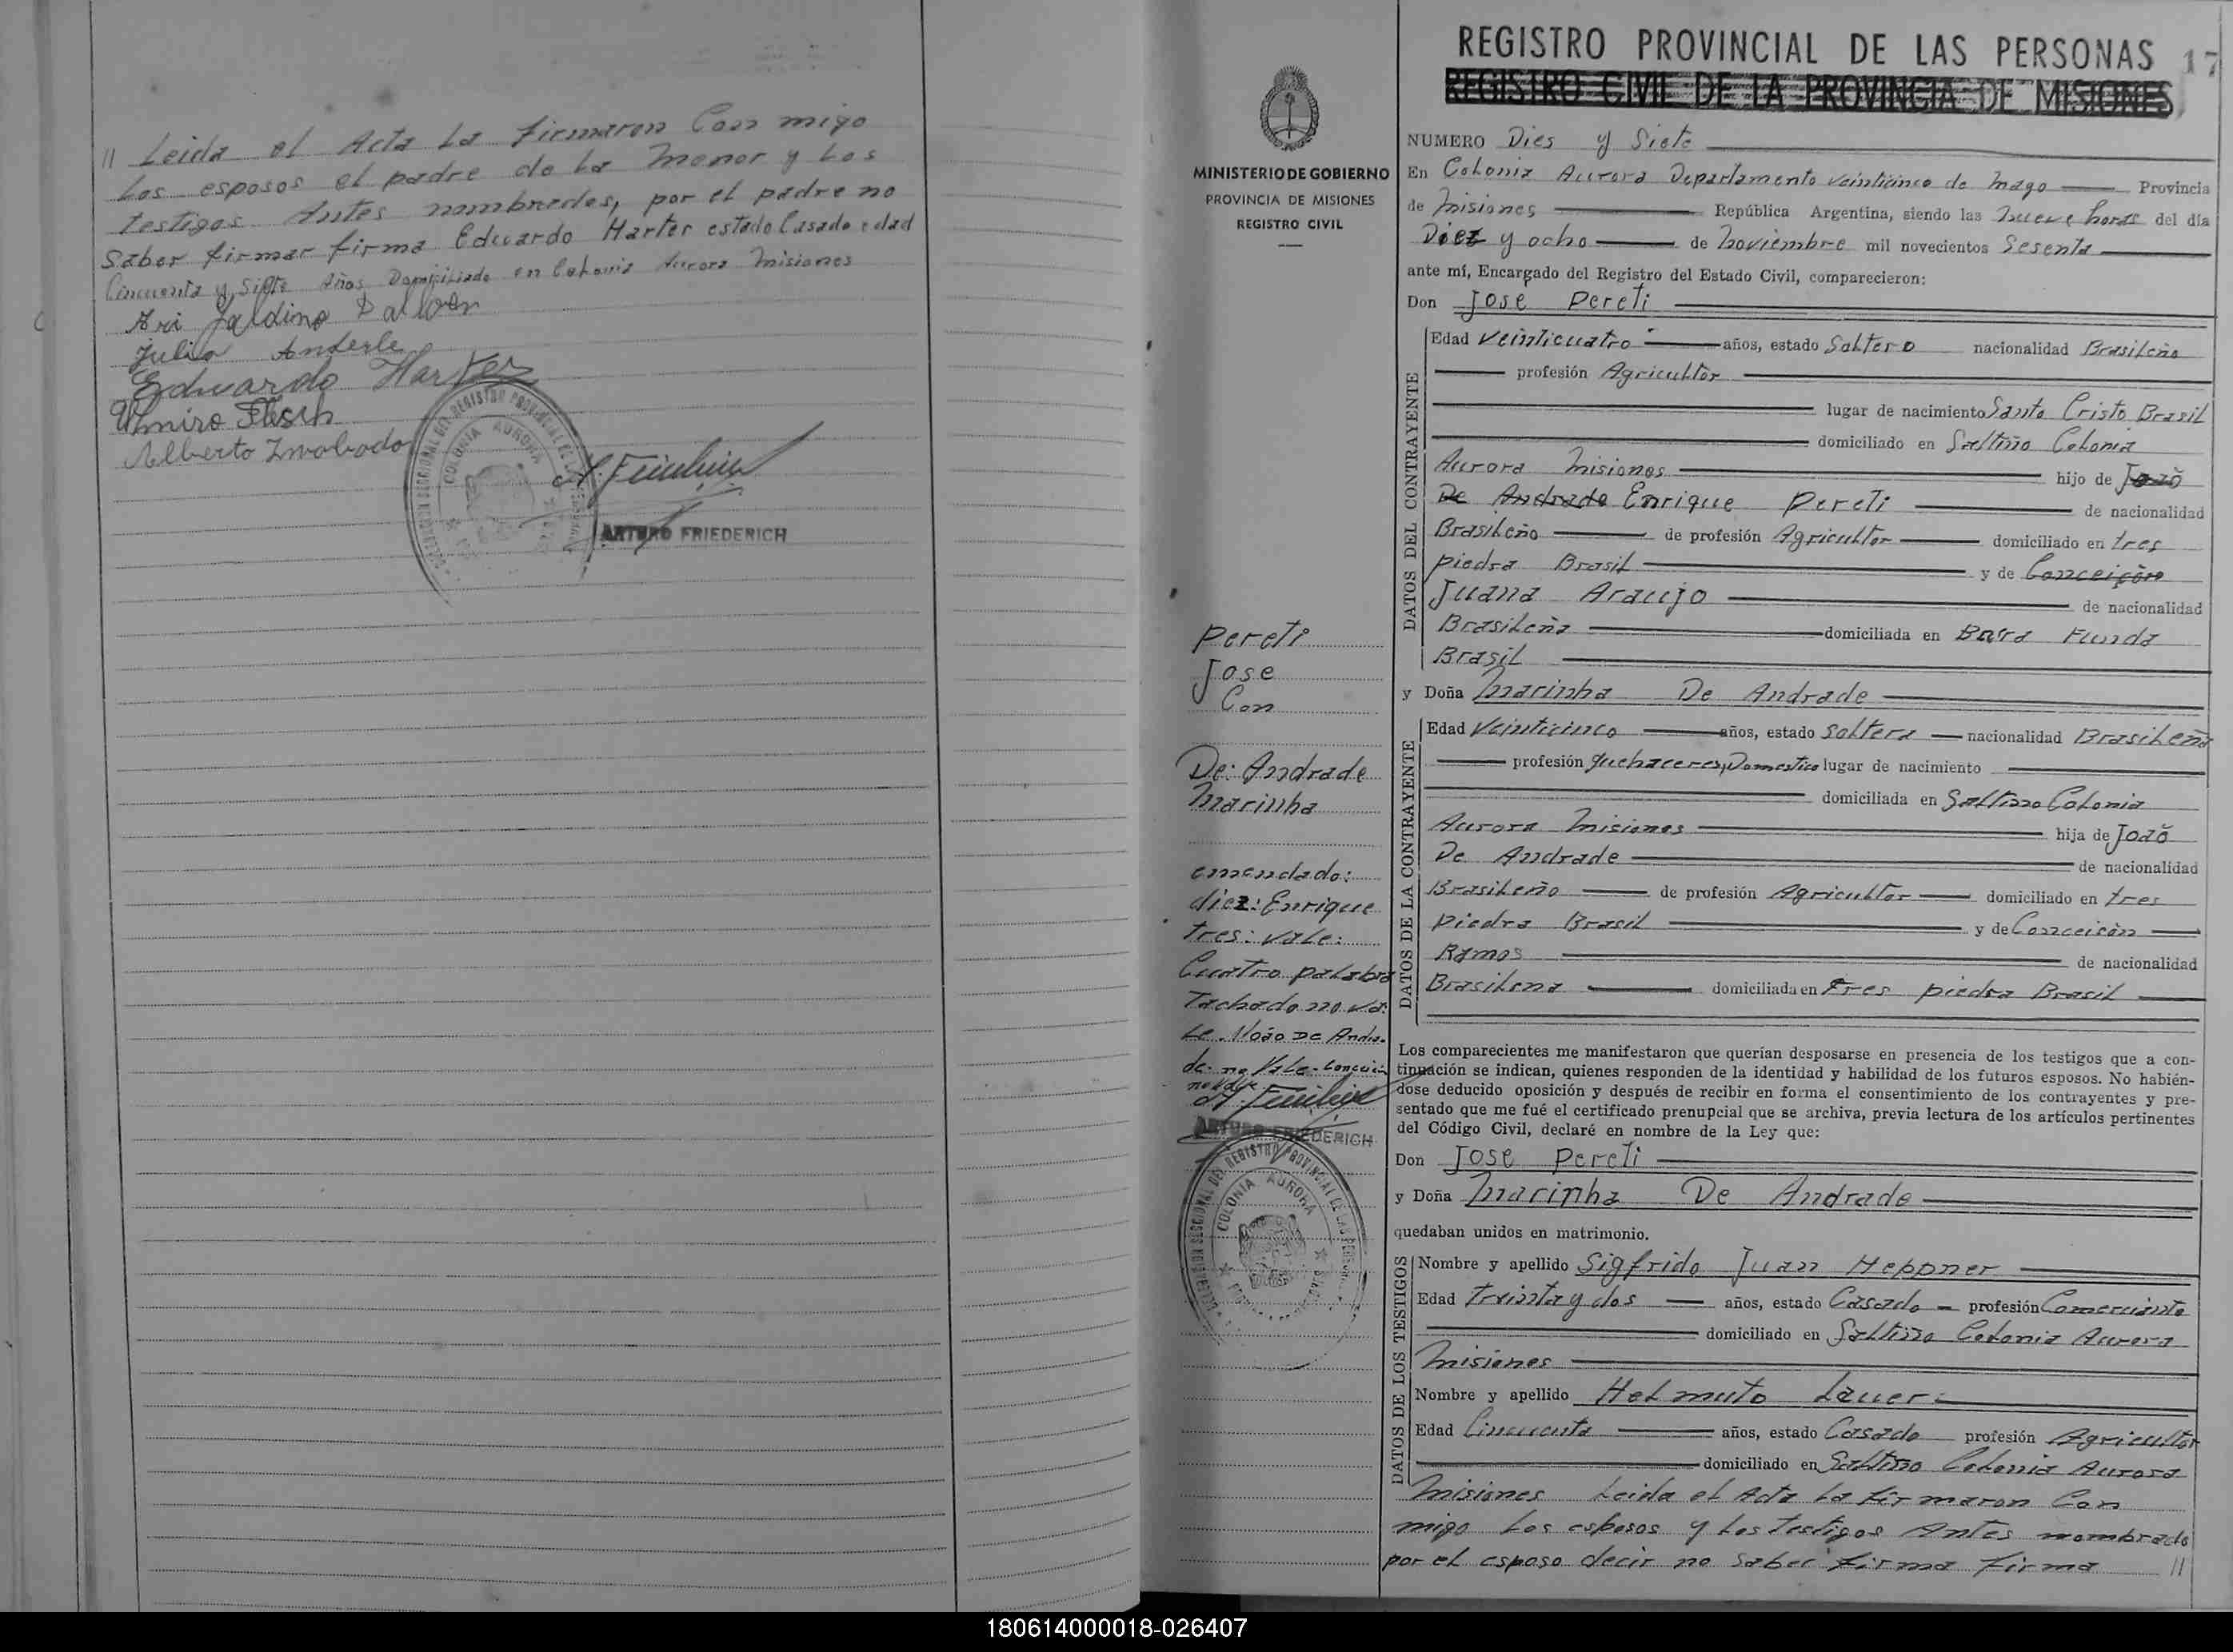 // Leida el Acta La firmaron Con migo
Los esposos el padre de La menor y Los
testigos Antes nombrados, por el padre no
Saber firmar firma Eduardo Harter estado Casado edad
Cincuenta y Siete Años Domiciliado en Colonia Aurora Misiones
Ari Galdino Dalven
Julia Anderle
Eduardo Harter
Almiro
Alberto
DELEGACION SECCIONAL DEL REGISTRO PROVINCIAL DE LAS PERSONAS
COLONIA AURORA
ARTURO FRIEDERICH
MINISTERIO DE GOBIERNO
PROVINCIA DE MISIONES
REGISTRO CIVIL
Pereti
Jose
Con
De: Andrade
Marinha
emendado:
diez: Enrique
tres: vale:
Cuatro palabra
Tachado no va:
Le. Joáo De Andra-
de- no Vale- Conceición
no Vale
ARTURO FRIEDERICH
DELEGACION SECCIONAL DEL REGISTRO PROVINCIAL DE LAS PERSONAS
COLONIA AURORA
REGISTRO PROVINCIAL DE LAS PERSONAS 17
REGISTRO CIVIL DE LA PROVINCIA DE MISIONES
NUMERO Dies y Siete
En Colonia Aurora Departamento veinticinco de Mayo Provincia
de Misiones República Argentina, siendo las Nueve horas del día
Diez y ocho de Noviembre mil novecientos Sesenta
ante mí, Encargado del Registro del Estado Civil, comparecieron:
Don Jose Pereti
DATOS DEL CONTRAYENTE
Edad Veinticuatro años, estado Soltero nacionalidad Brasileño
profesión Agricultor
lugar de nacimiento Santo Cristo Brasil
domiciliado en Saltiño Colonia
Aurora Misiones hijo de Joaŏ
De Andrade Enrique Pereti de nacionalidad
Brasileño de profesión Agricultor domiciliado en tres
piedra Brasil y de Conceiçòn
Juana Araujo de nacionalidad
Brasileña domiciliada en Barra Funda
Brasil
y Doña Marinha De Andrade
DATOS DE LA CONTRAYENTE
Edad Veinticinco años, estado Soltera nacionalidad Brasileña
profesión Quehaceres Domestico lugar de nacimiento
domiciliada en Saltino Colonia
Aurora Misiones hija de Joaŏ
De Andrade de nacionalidad
Brasileño de profesión Agricultor domiciliado en tres
Piedra Brasil y de Conceición
Ramos de nacionalidad
Brasilena domiciliada en Tres piedra Brasil
Los comparecientes me manifestaron que querían desposarse en presencia de los testigos que a con-
tinuación se indican, quienes responden de la identidad y habilidad de los futuros esposos. No habién-
dose deducido oposición y después de recibir en forma el consentimiento de los contrayentes y pre-
sentado que me fué el certificado prenupcial que se archiva, previa lectura de los artículos pertinentes
del Código Civil, declaré en nombre de la Ley que:
Don Jose Pereti
y Doña Marinha De Andrade
quedaban unidos en matrimonio.
DATOS DE LOS TESTIGOS
Nombre y apellido Sigfrido Juan Heppner
Edad Treinta y dos años, estado Casado profesión Comerciante
domiciliado en Saltiño Colonia Aurora
Misiones
Nombre y apellido Helmuto Lauer
Edad Cincuenta años, estado Casado profesión Agricultor
domiciliado en Saltino Colonia Aurora
Misiones Leida el Acta La firmaron Con
migo Los esposos y Los testigos Antes nombrado
por el esposo decir no saber firma firma //
180614000018-026407